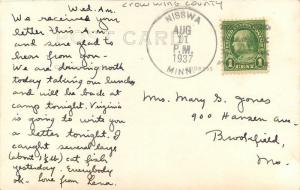 Crow Wing County
Wed. A.m.
We received your
letter this A.M.
and sure glad to
hear from you –
We are driving north
today taking our lunch
and will be back at
camp tonight. Virginia
is going to write you
a letter tonight. I
caught several large
(about 1½ lb) cat fish
yesterday. Everybody
ok. Love from Lena.
CARD
NISSWA
AUG
11
P.M.
1937
MINN
1 CENT 1
Mrs. Mary G. Jones
900 Hansen Ave
Brookfield,
Mo.